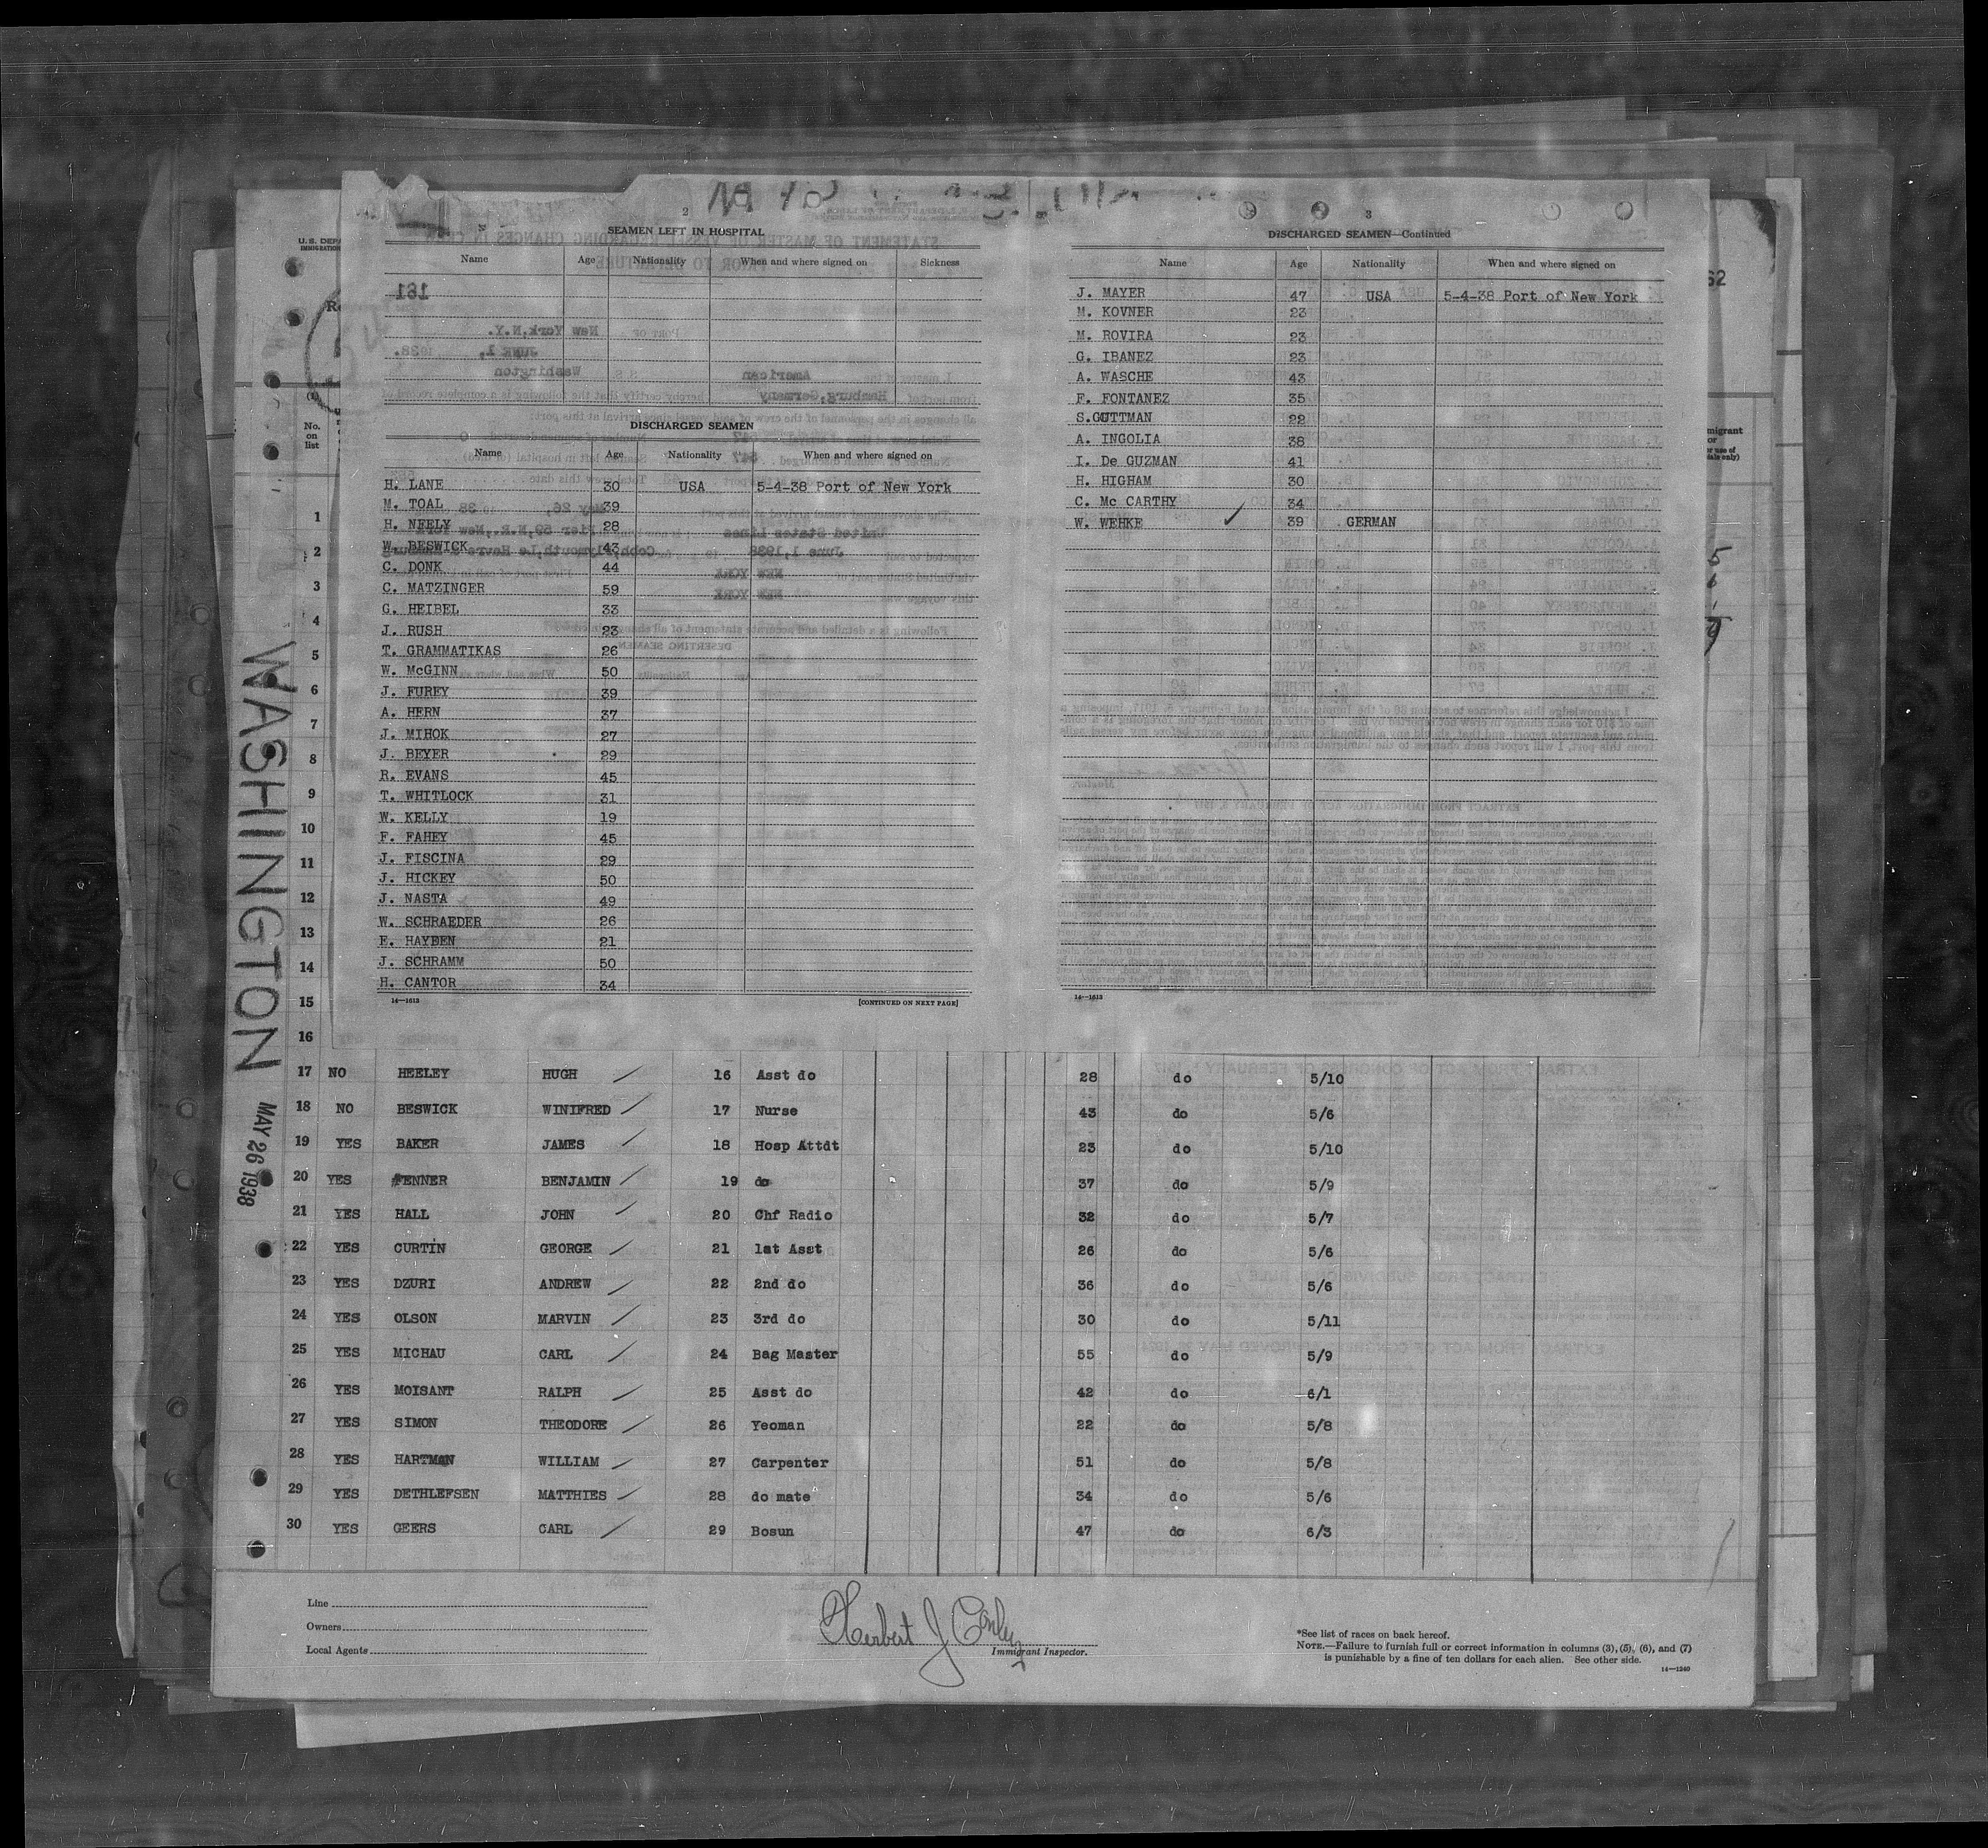 2
SEAMEN LEFT IN HOSPITAL
Name Age Nationality When and where signed on Sickness
DISCHARGED SEAMEN
Name Age Nationality When and where signed on
H. LANE 30 USA 5-4-38 Port of New York
M. TOAL 39
H. NEELY 28
W. BESWICK 43
C. DONK 44
C. MATZINGER 59
G. HEIBEL 33
J. RUSH 23
T. GRAMMATIKAS 26
W. McGINN 50
J. FUREY 39
A. HERN 37
J. MIHOK 27
J. BEYER 29
R. EVANS 45
T. WHITLOCK 31
W. KELLY 19
F. FAHEY 45
J. FISCINA 29
J. HICKEY 50
J. NASTA 49
W. SCHRAEDER 26
E. HAYDEN 21
J. SCHRAMM 50
H. CANTOR 34
14—1613 [CONTINUED ON NEXT PAGE]
3
DISCHARGED SEAMEN—Continued
Name Age Nationality When and where signed on
J. MAYER 47 USA 5-4-38 Port of New York
M. KOVNER 23
M. ROVIRA 23
G. IBANEZ 23
A. WASCHE 43
F. FONTANEZ 35
S.GUTTMAN 22
A. INGOLIA 38
I. De GUZMAN 41
H. HIGHAM 30
C. Mc CARTHY 34
W. WEHKE ✓ 39 GERMAN
14—1613
U.S. DEPA
IMMIGRATION
No. on list
WASHINGTON
MAY 26 1938
1
2
3
4
5
6
7
8
9
10
11
12
13
14
15
16
17 NO HEELEY HUGH 16 Asst do 28 do 5/10
18 NO BESWICK WINIFRED 17 Nurse 43 do 5/6
19 YES BAKER JAMES 18 Hosp Attdt 23 do 5/10
20 YES FENNER BENJAMIN 19 do 37 do 5/9
21 YES HALL JOHN 20 Chf Radio 32 do 5/7
22 YES CURTIN GEORGE 21 1st Asst 26 do 5/6
23 YES DZURI ANDREW 22 2nd do 36 do 5/6
24 YES OLSON MARVIN 23 3rd do 30 do 5/11
25 YES MICHAU CARL 24 Bag Master 55 do 5/9
26 YES MOISANT RALPH 25 Asst do 42 do 6/1
27 YES SIMON THEODORE 26 Yeoman 22 do 5/8
28 YES HARTMAN WILLIAM 27 Carpenter 51 do 5/8
29 YES DETHLEFSEN MATTHIES 28 do mate 34 do 5/6
30 YES GEERS CARL 29 Bosun 47 do 6/3
Line
Owners
Local Agents
Herbert J Conley
Immigrant Inspector.
*See list of races on back hereof.
NOTE.—Failure to furnish full or correct information in columns (3), (5), (6), and (7)
is punishable by a fine of ten dollars for each alien. See other side.
14—1240